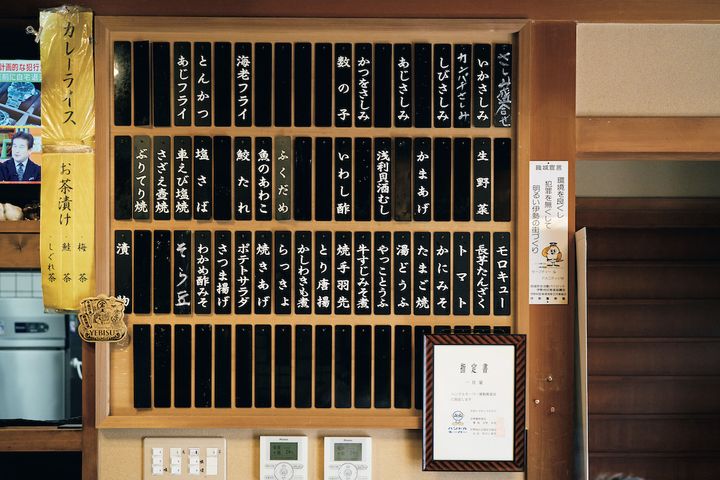 カレーライス
お茶漬け
梅茶
鮭茶
しぐれ茶
さしみ盛合せ
いかさしみ
カンパチさしみ
しびさしみ
あじさしみ
かつをさしみ
数の子
海老フライ
とんかつ
あじフライ
生野菜
かまあげ
浅利貝酒むし
いわし酢
ふくだめ
魚のあわこ
鮫たれ
塩さば
車えび塩焼
さざえ壺焼
ぶりてり焼
モロキュー
長芋たんざく
トマト
かにみそ
たまご焼
湯どうふ
やっことうふ
牛すじみそ煮
焼手羽先
とり唐揚
かしわきも煮
らっきょ
焼きあげ
ポテトサラダ
さつま揚げ
わかめ酢みそ
そら豆
漬物
YEBISU
職域宣言
環境を良くし
犯罪を無くして
明るい伊勢の街づくり
指定書